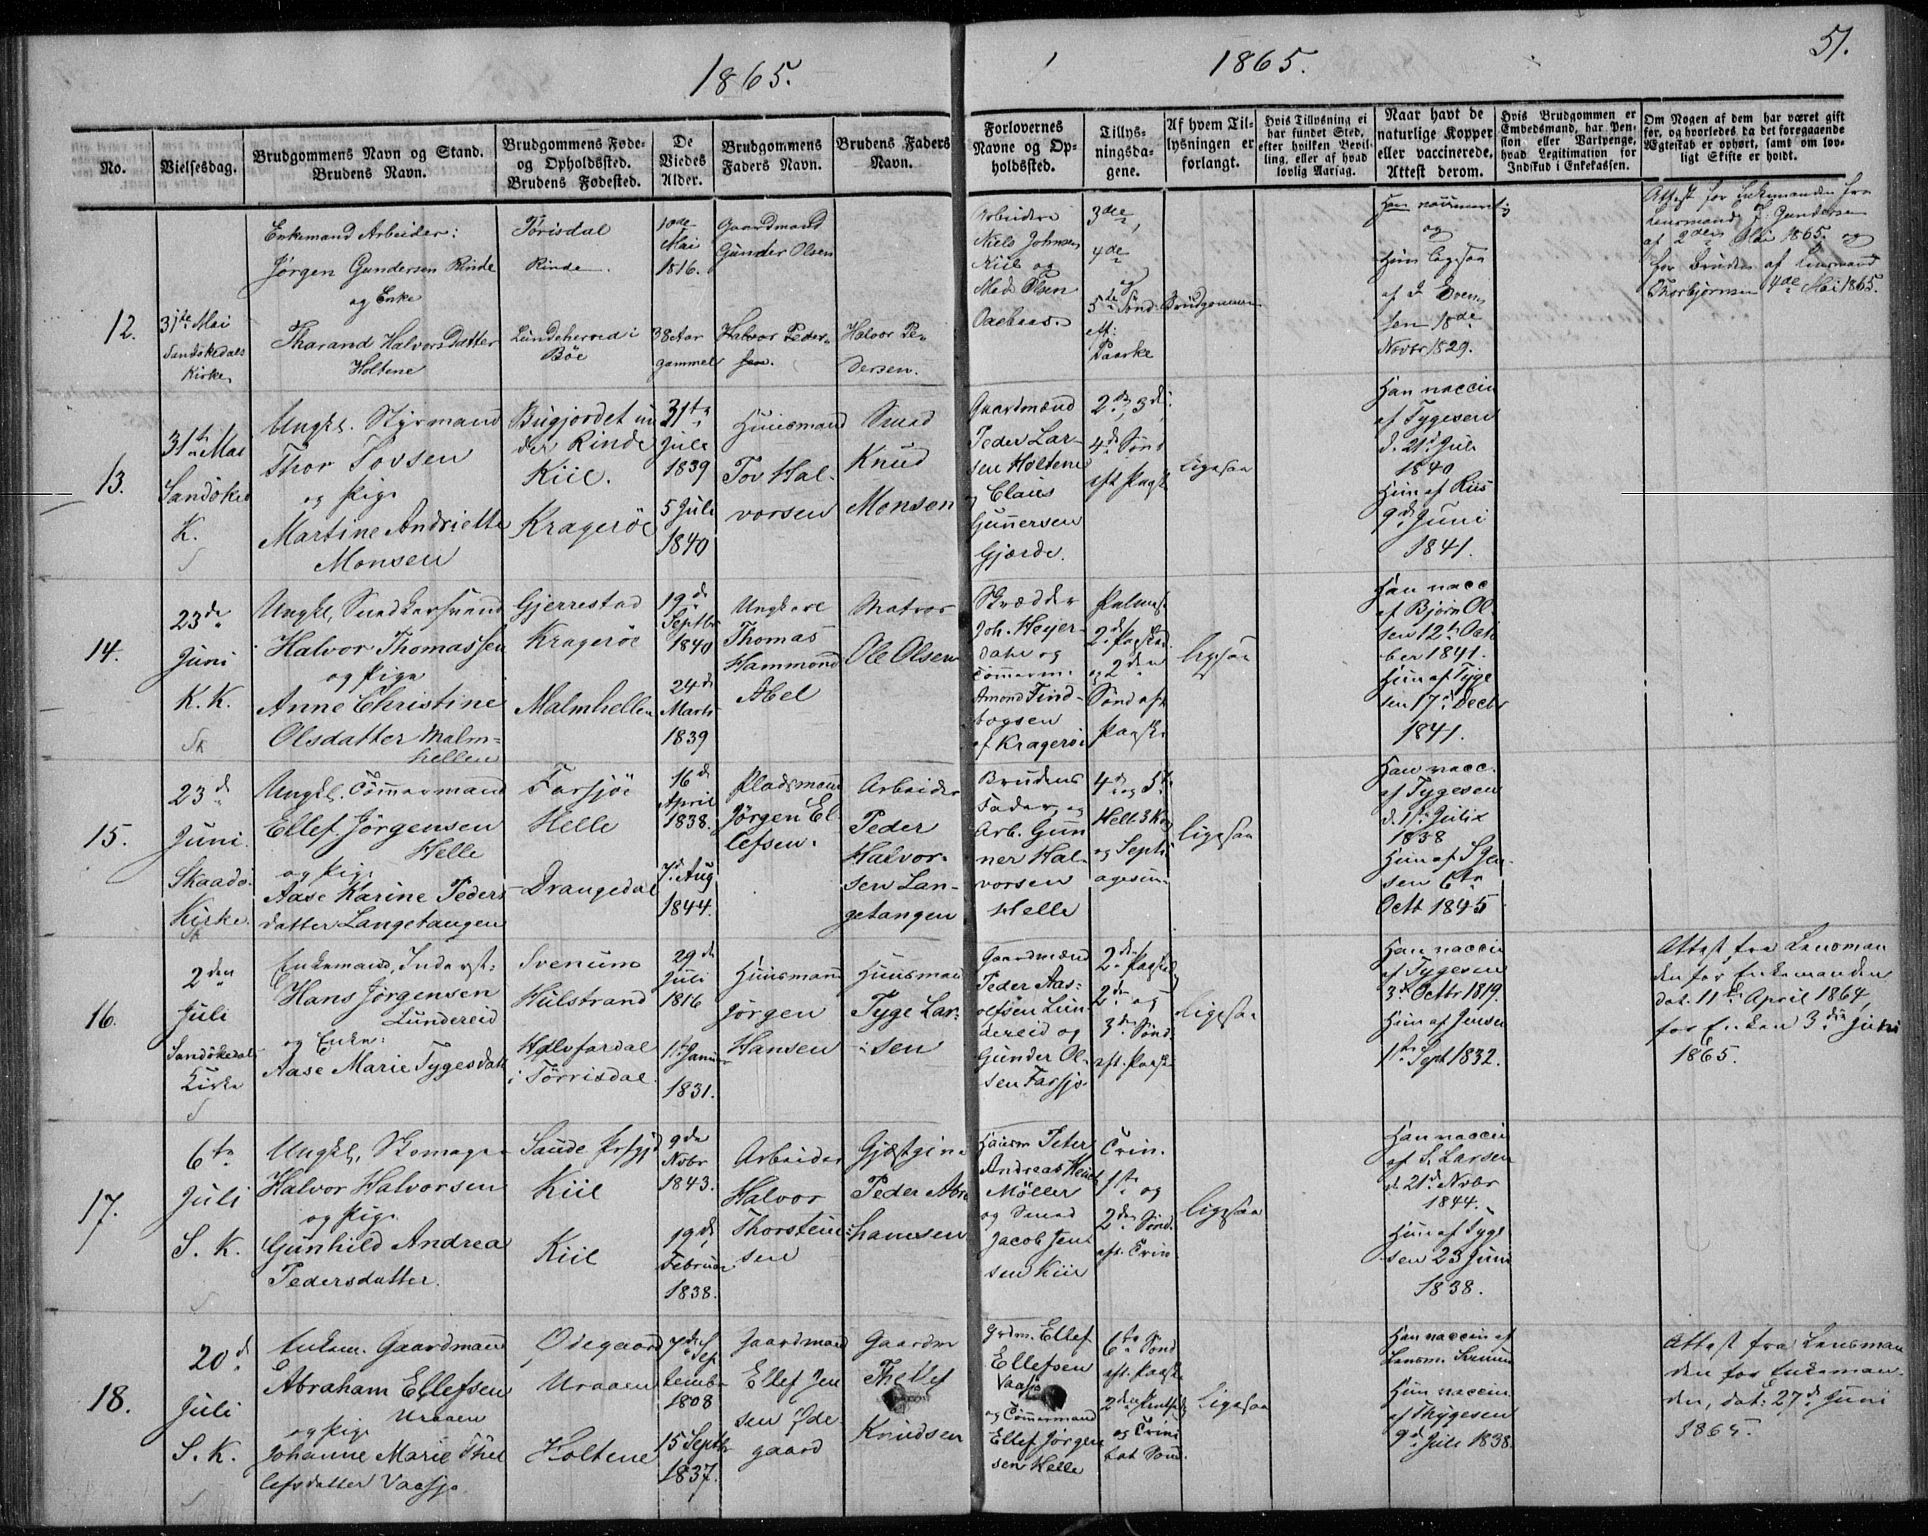 1865.
1865.
51.
No.
Vielsesdag.
Brudgommens Navn og Stand.
Brudens Navn.
Brudgommens Føde-
og Opholdssted.
Brudens Fødested.
De
Viedes
Alder.
Brudgommens
Faders Navn.
Brudens Faders
Navn.
Forlovernes
Navne og Op-
holdssted.
Tillys-
ningsda-
gene.
Af hvem Til-
lysningen er
forlangt.
Hvis Tillysning ei
har fundet Sted,
efter hvilken Bevil-
ling, eller af hvad
lovlig Aarsag.
Naar havt de
naturlige Kopper
eller vaccinerede,
Attest derom.
Hvis Brudgommen er
Embedsmand, har Pen-
sion eller Vartpenge,
hvad Legitimation for
Indskud i Enkekassen.
Om Nogen af dem har været gift
før, og hvorledes da det foregaaende
Ægteskab er ophørt, samt om lov-
ligt Skifte er holdt.
12.
31te Mai
Sandøkedals
Kirke
Enkemand Arbeider:
Jørgen Gundersen Rinde
og Enke
Tharand Halvors Datter
Holtene
Törisdal
Rinde.
Lundeherred i
Böe
10de
Mai
1816.
38 Aar
gammel
Gaardmand
Gunder Olsen
Halvor Peder-
sen.
Halvor Pe-
dersen.
Arbeidere
Niels Johnsen
Kiil og
Mads Olsen
3de,
4de
og
5te Sönd.
eft:
Paaske
Brudgommen
Han vaccineret
og
Hun ligesaa
af
18de
Novbr 1829.
Attest for Enkemanden fra
Lensmand Gundersen
af 2den Mai 1865 og
for Bruden af Lensmand
Thorbjörnsen 4de Mai 1865.
13.
31te Mai
Sandöked
K.
Ungk. Styrmand
Thor Tovsen
og Pige
Martine Andriette
Monsen
Bugjordet un
der Rinde
Kiil.
Kragerøe
31te
Juli
1839
5 Juli
1840
Huusmand
Tov Hal-
vorsen
Smed
Knud
Monsen
Gaardmænd
Peder Lar-
sen Holtene
og Claus
Gunnersen
Gjærde.
2de, 3de
4de Sönd
eft Paaske
ligesaa
Han vaccin
af Tygesen
d. 21de Juli
1840
Hun af Riis
9de Juni
1841.
14.
23de
Juni
K. K.
Halvor Thomassen
og Pige
Anne Christine
Olsdatter Malm-
hellen
Gjerrestad
Kragerøe
Malmhellen
19de
Septbr
1840
24de
Marts
1839
Ungkarl
Thomas
Hammond
Abel
Matros
Ole Olsen
Skrædder
Joh. Heyer-
dahl og
Tömmerm.
Amond Find-
bogsen
af Kragerøe
Palmes
2de Paaskd
og 2den
Sönd eft
Paaske
ligesaa
Han vacc
af Björn Ol
sen 12te Octo
ber 1841.
Hun af Tyge
sen 17de Decbr
1841.
15.
23de
Juni
Skaadö
Kirke.
Ungk. Tömmermand
Ellef Jörgensen
Helle
og Pige
Aase Karine Peders
datter Langetangen
Farsjöe
Helle
Drangedal
16de
April
1838.
7de Aug
1844.
Pladsmand
Jørgen El-
lefsen.
Arbeider
Peder
Halvor-
sen Lan-
getangen
Brudens
Fader, og
Arb. Gun
ner Hal-
vorsen
Helle
4de og 5te
Hell 3 Kon
og Septu
agesim
ligesaa
Han vacc.
af Tygesen
1838
Hun af
sen 6te
Octb 1845
16.
2den
Juli
Sandökedals
Kirke
Enkemand, Inderst:
Hans Jørgensen
Lundereid
og Enke:
Aase Marie Tygesdatt
Svenum
Kulstrand
Halvfardal
i Törrisdal.
29de
Juli
1816
11te Januar
1831.
Huusmand
Jørgen
Hansen
Huusmand
Tyge Lar-
sen
Gaardmænd
Peder Aas-
olfsen Lun
dereid og
Gunder Ol-
sen Farsjö
2de Paaskd
2de og
3de Sönd.
eft. Paaske
ligesaa
Han vaccin
af Tygesen
3de Octbr 1819.
Hun af Jensen
1te Sept 1832.
Attest fra Lensman
den for Enkemanden
dat. 11te April 1864,
for Enken 3die Juni
1865.
17.
6te
Juli
S. K.
Ungk. Skomager
Halvor Halvorsen
og Pige
Gunhild Andrea
Pedersdatter.
Kiil
Kiil
9de
Novbr
1843.
19de
Februar
1838.
Arbeider
Halvor
Thorstein-
sen
Gjestgiver
Peder Abra
hamsen
Peter
Andreas
Möller
og Smed
Jacob Jen
sen Kiil
Trin.
1ste og
2den Sönd.
eft. Trin
ligesaa
Han vaccin
af S. Larsen
d 21de Novbr
1844.
Hun af Tyge
sen 23 Juni
1838.
18.
20de
Juli
S. K.
Enkem. Gaardmand
Abraham Ellefsen
Uraaen
og Pige
Johanne Marie Thel
lefsdatter Vaasjø
Ødegaard
Uraaen
Holtene
7de Sep
tembr
1808
15 Septbr
1837.
Gaardmand
Ellef Jen
sen Øde-
gaard
Gaardm
Thellef
Knudsen
Grdm. Ellef
Ellefsen
Vaasjø
og Tömmermand
Ellef Jørgen
sen Helle
6te Sönd
eft. Paaske
og Trini
tat Sönd.
ligesaa
Han vaccin af
Lensm.
Hun vaccin
af Thygesen
9de Juli 1838.
Attest fra Lensman
den for Enkeman-
den, dat: 27de Juni
1865.